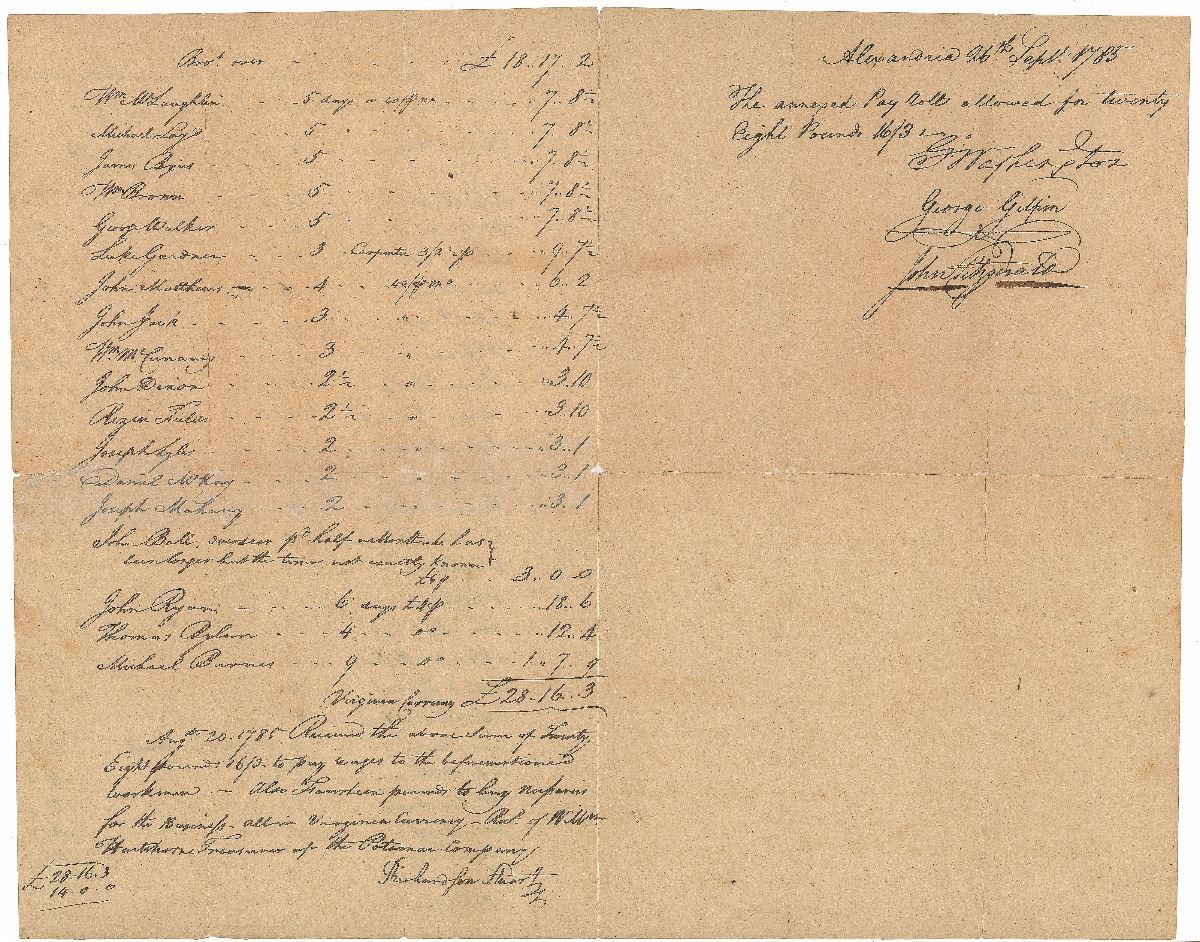 Bro.t over £ 18..17..2
Wm McLaughlin 5 days a 40/ pr mo 7..8½
Michael 5 7..8½
James 5 7..8½
Wm Brown 5 7..8½
George Walker 5 7..8½
Luke Gardner 3 Carpenter 3/2½ p 9..7½
John Matthews 4 40/ pr mo 6..2
John Jack 3 " 4..7½
Wm McCunany 3 " 4..7½
John Dixon 2½ " 3.10
Rezin 2½ " 3.10
Joseph Lyles 2 3..1
Daniel McKay 2 3..1
Joseph Mahany 2 3..1
John Ball, overseer pd half a Month, he has
been longer but the time not exactly known
£6 p 3..0..0
John Ryan 6 days £4 p 18..6
Thomas 4 Do 12..4
Michael Barnes 9 Do 1..7..9
Virginia Currency £ 28..16..3
Augt 20. 1785 Received the above Sum of Twenty
Eight pounds 16/3 to pay wages to the beforementioned
workmen - Also Fourteen pounds to buy
for the Business - all in Virginia Currency - Recd of Willm
Hartshorne Treasurer of the Potomac Company
Richardson Stewart
£ 28..16..3
14..0..0
Alexandria 26th Septr 1785
The annexed Pay Rolls allowed for twenty
Eight Pounds 16/3
G Washington
George Gilpin
John Fitzgerald